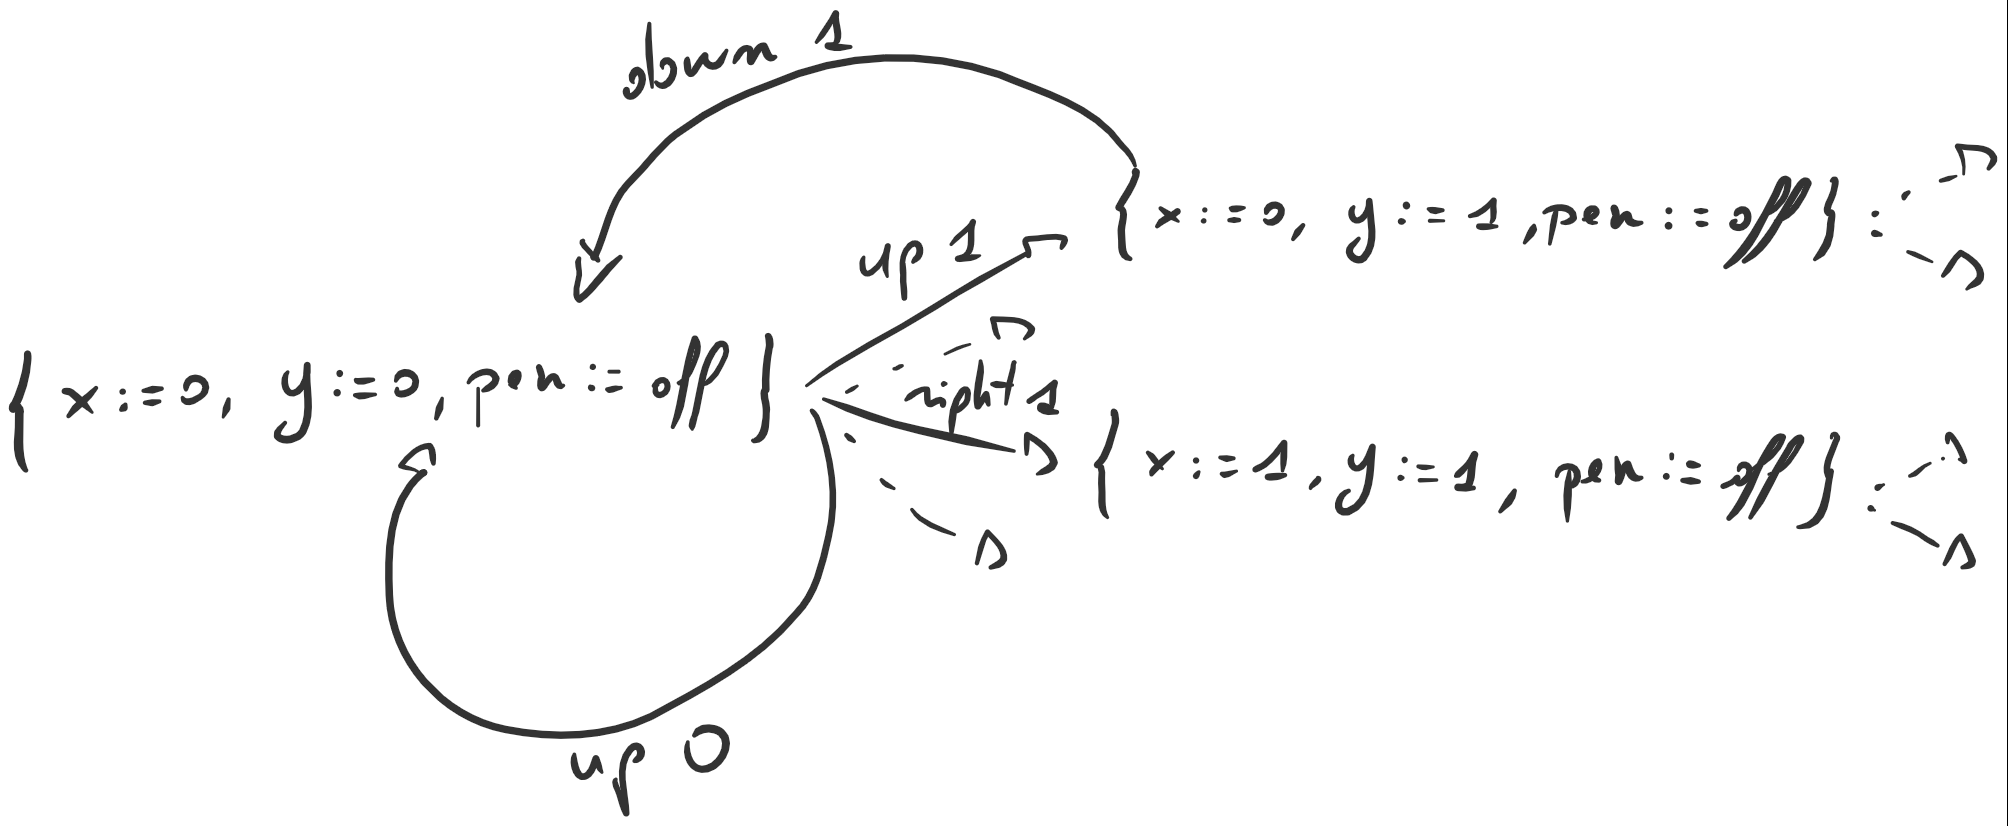 down 1
{ x := 0, y := 1, pen := off }
up 1
{ x := 0, y := 0, pen := off }
right 1
{ x := 1, y := 1, pen := off }
up 0